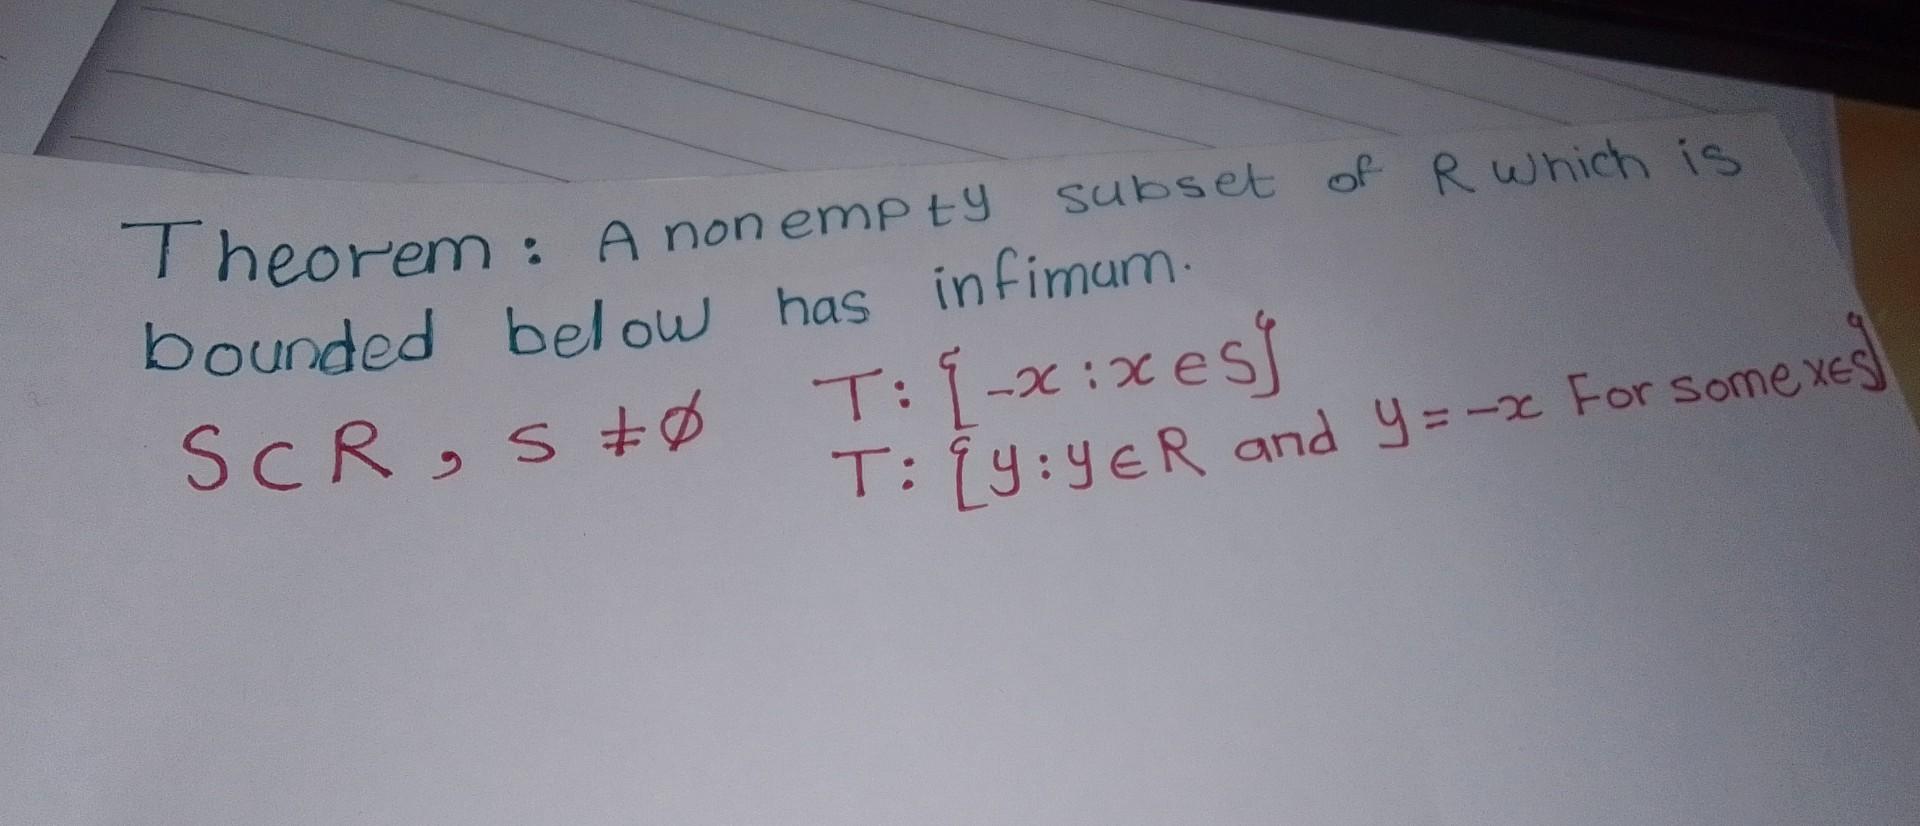 Theorem: A nonempty subset of R which is
bounded below has infimum.
S⊂R, S≠∅ T: {-x : x ∈ S}
T: {y : y ∈ R and y = -x For some x∈S}